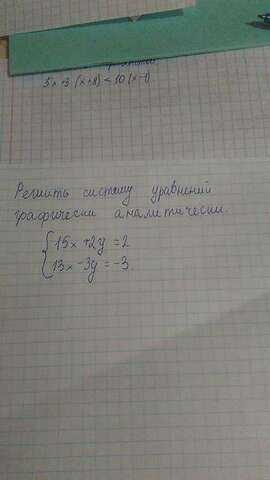 5x - 3(x+8) < 10(x-1)
Решить систему уравнений
графически аналитически.
{15x + 2y = 2
{13x - 3y = -3